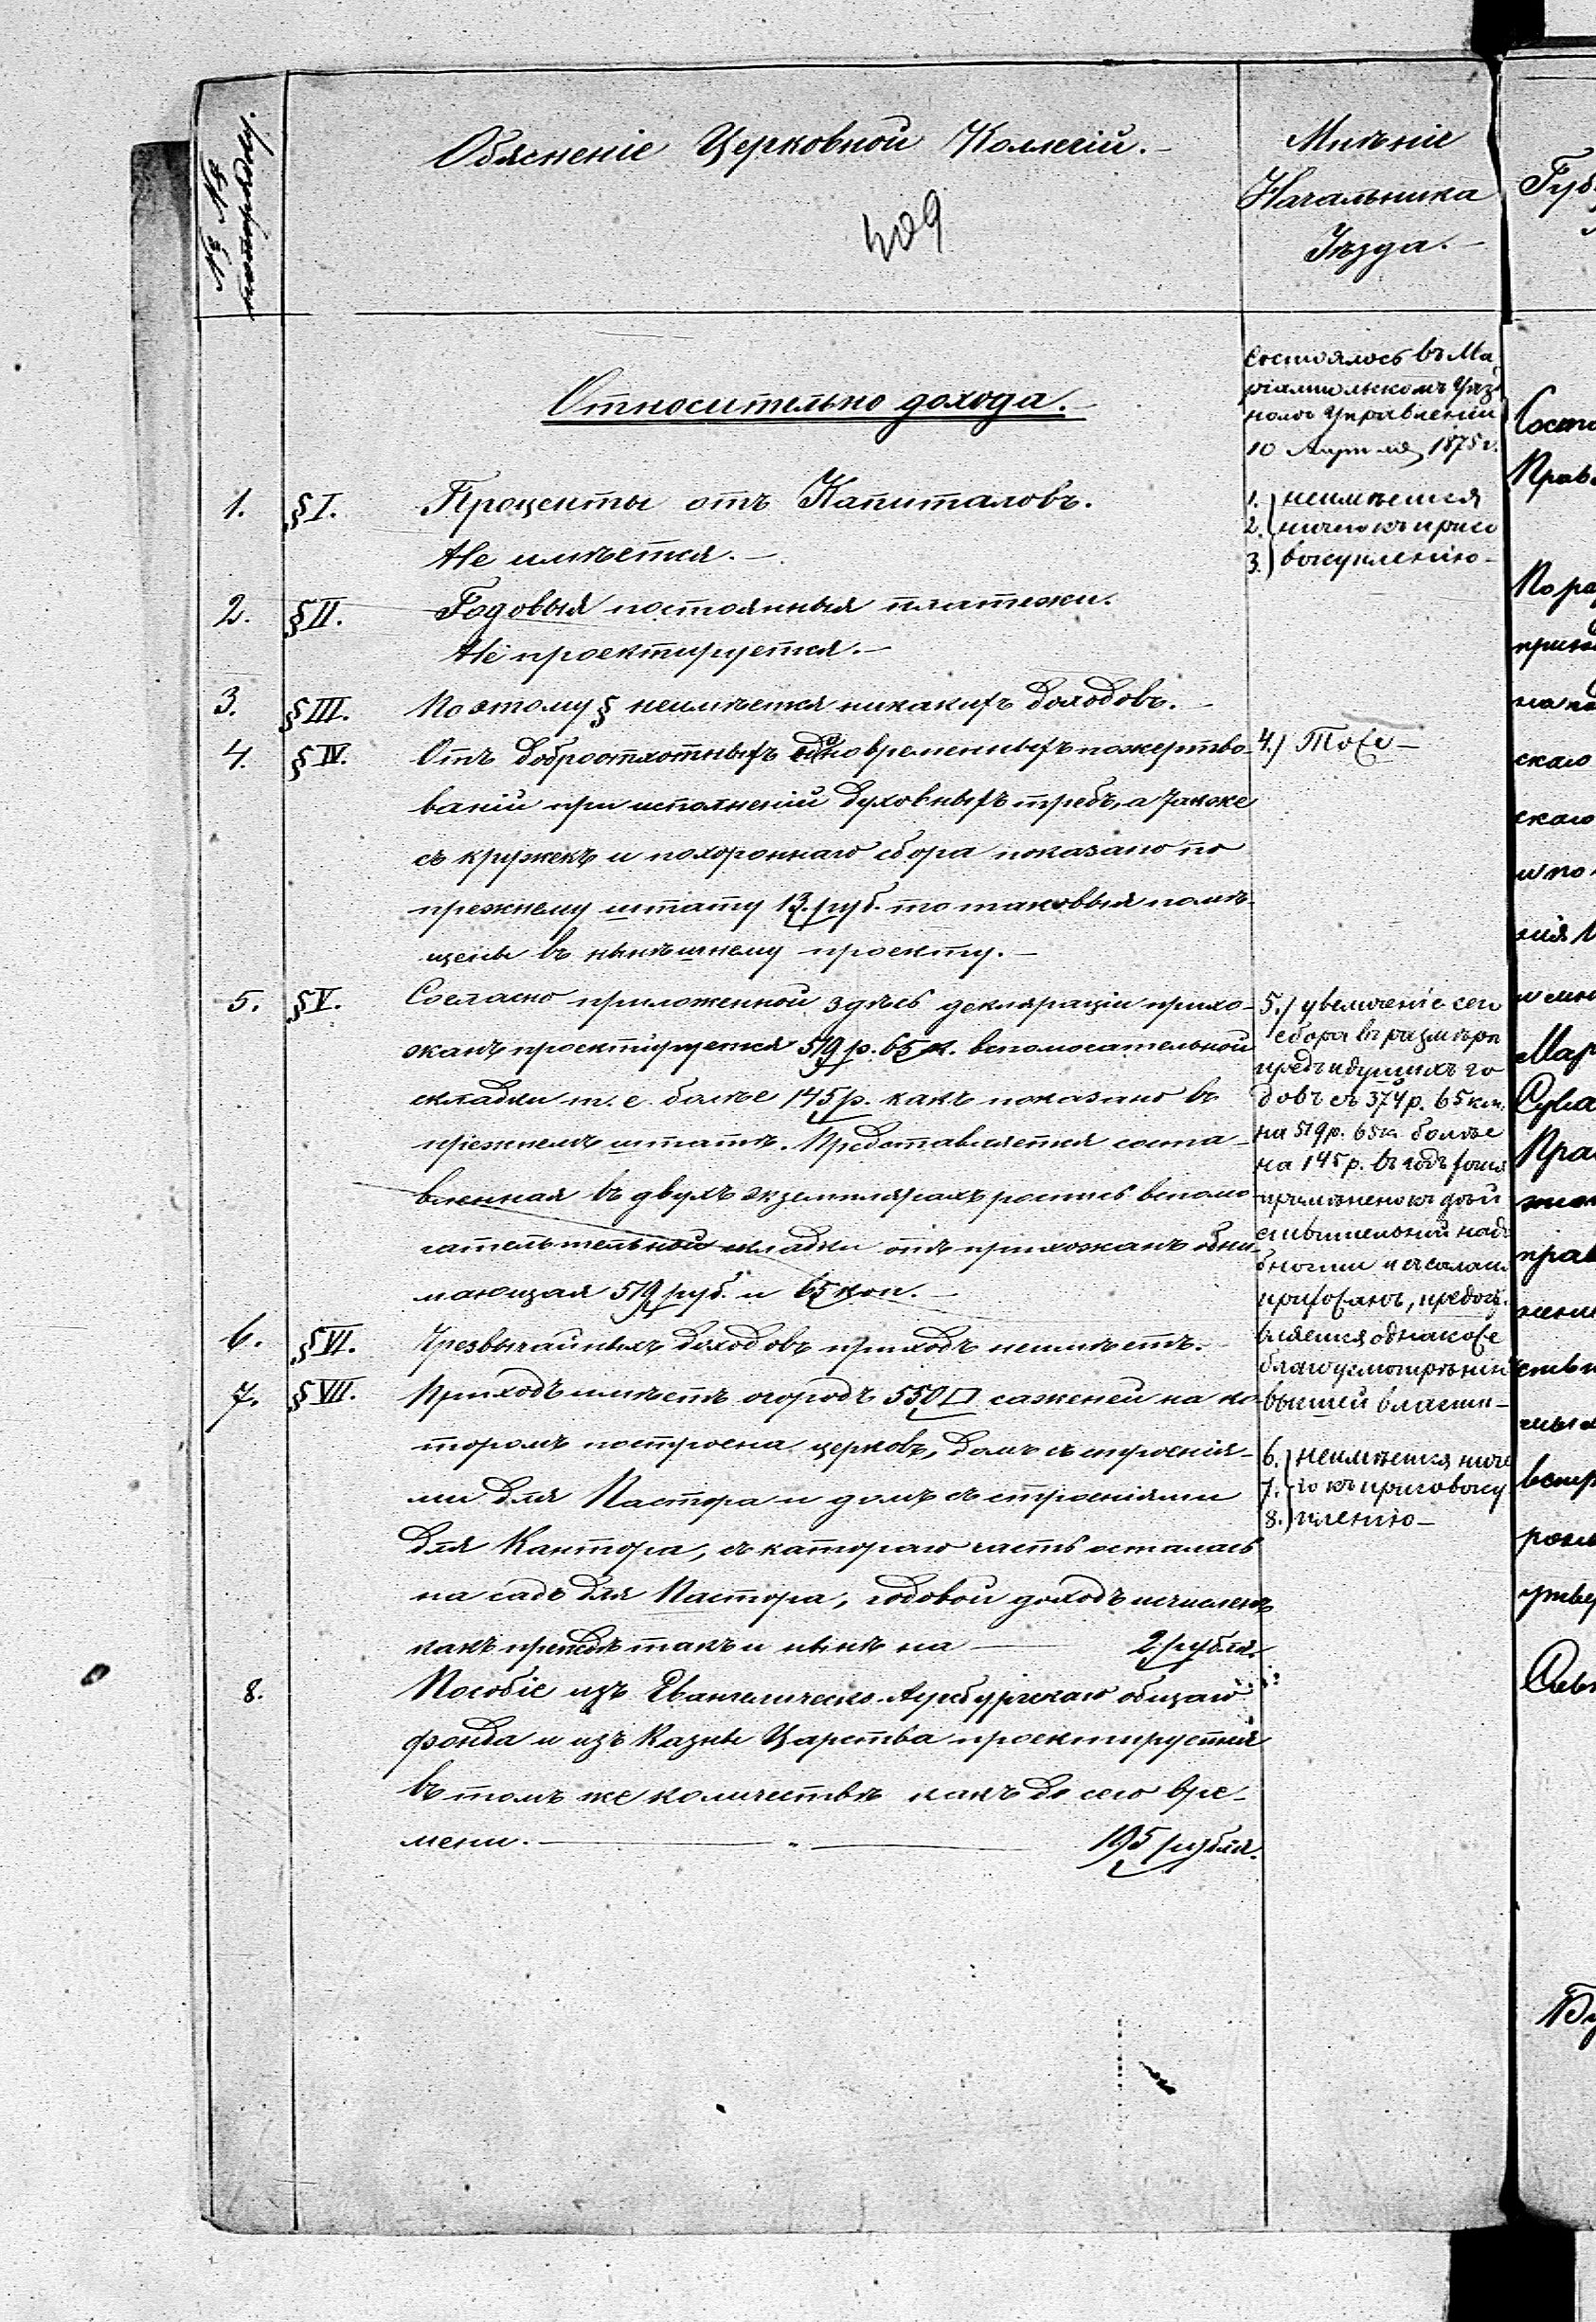 № №
Объясненіе Церковной Коллегіи.
409
Мнѣніе
Начальника
Уѣзда.
Относительно дохода.
1. § I. Проценты отъ Капиталовъ.
Не имѣется.
2. § II. Годовыя постоянныя платежи.
Не проектируется.
3. § III. По этому § неимѣется никакихъ доходовъ.
4. § IV. Отъ доброотхотныхъ единовременныхъ пожертво-
ваній при исполненій духовныхъ требъ, а также
съ кружекъ и похороннаго сбора показано по
прежнему штату 13. руб. то таковыя помѣ-
щены въ нынѣшнему проекту.
5. § V. Согласно приложенной здѣсь декляраціи прихо-
жанъ проектируется 519 р. 65 к. вспомогательной
складки т. е. болѣе 145 р. какъ показано въ
прежнемъ штатѣ. Представляется соста-
вленная въ двухъ экземплярахъ роспись вспомо-
гательтельной складки отъ прихожанъ обни-
мающая 519 руб. и 65 коп.
6. § VI. Чрезвычайныхъ доходовъ приходъ неимѣетъ.
7. § VII. Приходъ имѣетъ огородъ 550 □ саженей на ко-
торомъ построена церковь, домъ съ строенія-
ми для Пастора и домъ съ строеніями
для Кантора, съ каторого часть осталась
на садъ для Пастора, годовой доходъ исчисленъ
какъ прежде такъ и нынѣ на 2 рубля.
8. Пособіе изъ Евангелическо-Аугсбургскаго общаго
фонда и изъ Казны Царства проектируется
въ томъ же количествѣ какъ до сего вре-
мени. 195 рубля.
Состоялось въ Ма-
ріампольскомъ Уѣзд
номъ Управленіи
10 Апрѣля 1875 г.
1. неимѣется
2. ничего къ присо
3. вокупленію
4.) Тоже
5.) увеличеніе сего
сбора въ размѣрѣ
предъидущихъ го
довъ съ 374 р. 65 коп.
на 519 р. 65 к. болѣе
на 145 р. въ годъ
примѣнено къ дѣй
ствительной надо
бности и
прихожанъ, предос
вляется однакоже
благоусмотрѣнію
высшей власти
6. неимѣется ниче
7. го къ присовоку
8. пленію